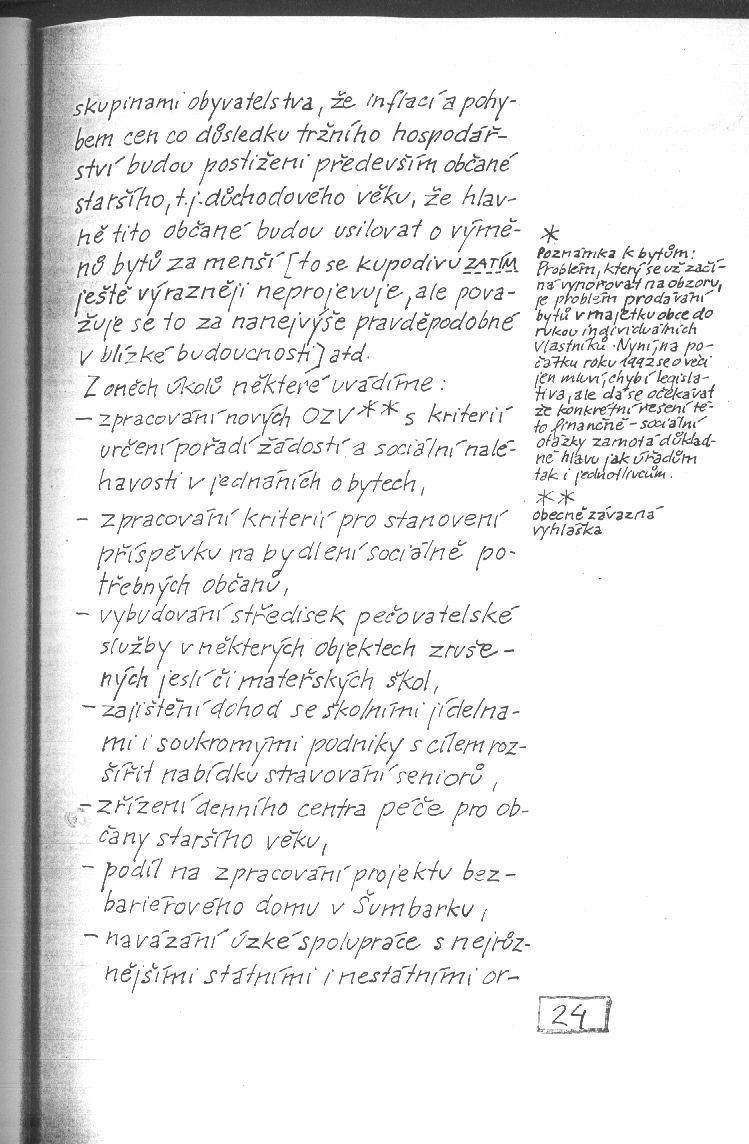 skupinami obyvatelstva, že inflací a pohy-
bem cen co důsledku tržního hospodář-
ství budou postiženi především občané
staršího, t.j. důchodového věku, že hlav-
ně tito občané budou usilovat o výmě-
nů bytů za menší [to se kupodivu ZATÍM
ještě výrazněji neprojevuje, ale pova-
žuje se to za nanejvýše pravděpodobné
v blízké budoucnosti] atd.
Z oněch úkolů některé uvádíme:
– zpracování nových OZV** s kriterií
určení pořadí žádostí a sociální nalé-
havosti v jednáních o bytech,
– zpracování kriterií pro stanovení
příspěvku na bydlení sociálně po-
třebných občanů,
– vybudování středisek pečovatelské
služby v některých objektech zruše-
ných jeslí či mateřských škol,
– zajištění dohod se školními jídelna-
mi i soukromými podniky s cílem roz-
šířit nabídku stravování seniorů,
– zřízení denního centra péče pro ob-
čany staršího věku,
– podíl na zpracování projektu bez-
bariérového domu v Šumbarku,
– navázání úzké spolupráce s nejrůz-
nějšími státními i nestátními or-
*
Poznámka k bytům:
Problém, který se už začí-
ná vynořovat na obzoru,
je problém prodávání
bytů v majetku obce do
rukou individuálních
vlastníků. Nyní, na po-
čátku roku 1992 se o věci
jen mluví, chybí legisla-
tiva, ale dá se očekávat
že konkrétní řešení té-
to finančně – sociální
otázky zamotá důklad-
ně hlavu jak úřadům
tak i jednotlivcům.
**
obecně závazná
vyhláška
24